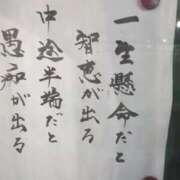 一生懸命だと
智恵が出る
中途半端だと
愚痴が出る